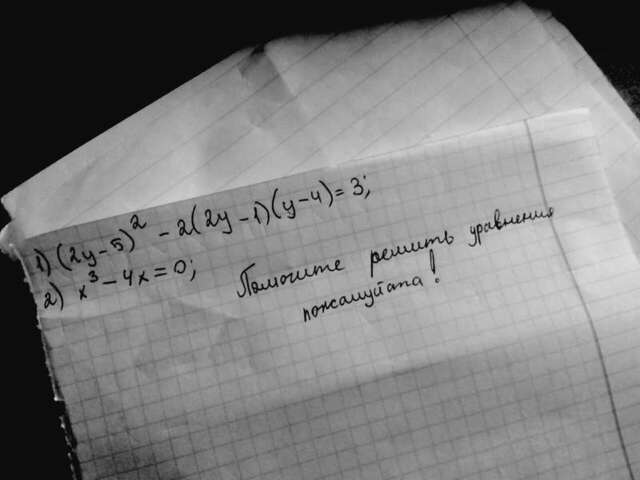 1) (2y-5)² - 2(2y-1)(y-4)=3;
2) x³-4x=0;
Помогите решить уравнения
пожалуйста!